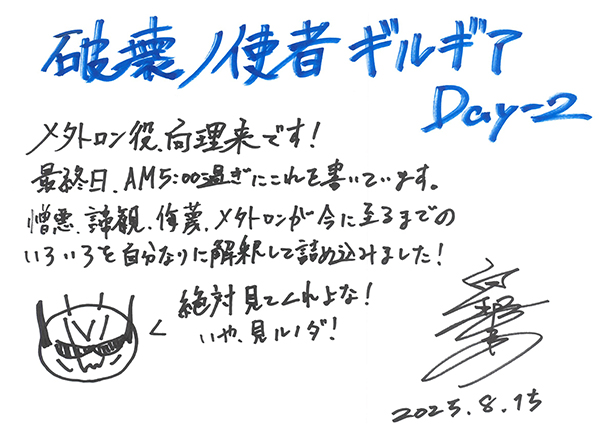 破壊ノ使者 ギルギア
Day-2
メタトロン役、向理来です!
最終日、AM5:00過ぎにこれを書いています。
憎悪、諦観、侮蔑、メタトロンが今に至るまでの
いろいろを自分なりに解釈して詰め込みました!
絶対見てくれよな!
いや、見ルノダ!
2025.8.15